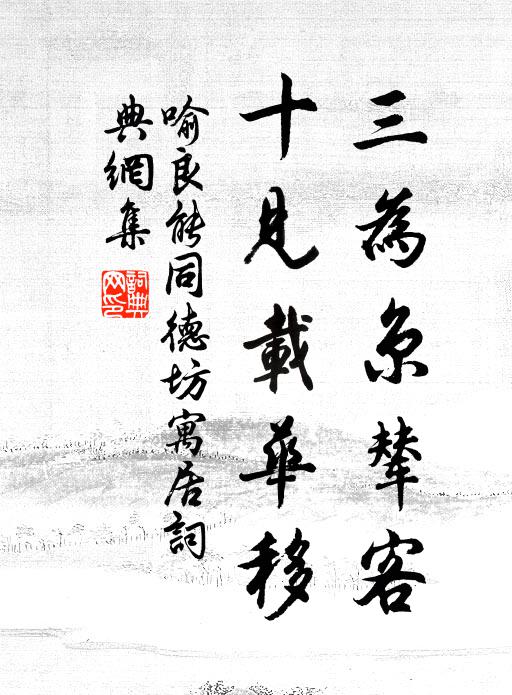 三為京輦客
十見載華移
喻良能同德坊寓居詞
典網集
詞典
网印